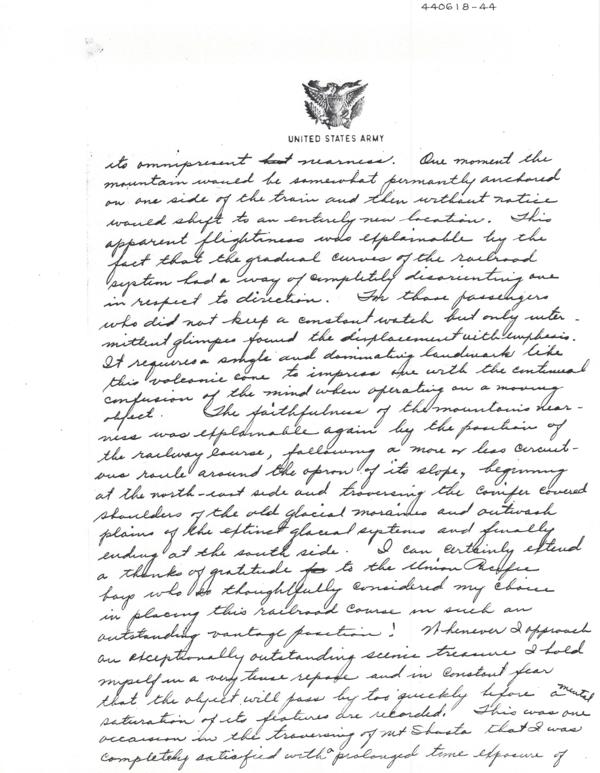 440618-44
UNITED STATES ARMY
its omnipresent but nearness. One moment the
mountain would be somewhat permantly anchored
on one side of the train and then without notice
would shift to an enterely new location. This
apparent flightiness was explainable by the
fact that the gradual curves of the railroad
system had a way of completely disorienting one
in respect to direction. For those passengers
who did not keep a constant watch but only inter-
mittent glimpes found the displacement with emphasis.
It requires a single and dominating landmark like
this volcanic cone to impress one with the continual
confusion of the mind when operating on a moving
object. The faithfulness of the mountains near-
ness was explainable again by the position of
the railway course, following a more or less circuit-
ous route around the apron of its slope, beginning
at the north-east side and traversing the conifer covered
shoulders of the old glacial moraines and outwash
plains of the extinct glacial systems and finally
ending at the south side. I can certainly extend
a thanks of gratitude to the Union Pacific
boys who so thoughtfully considered my choice
in placing this railroad course in such an
outstanding vantage position! Whenever I approach
an exceptionally outstanding scenic treasure I hold
myself in a very tense repose and in constant fear
that the object will pass by too quickly before a mental
saturation of its features are recorded. This was one
occasion in the traversing of Mt Shasta that I was
completely satisfied with a prolonged time exposure of